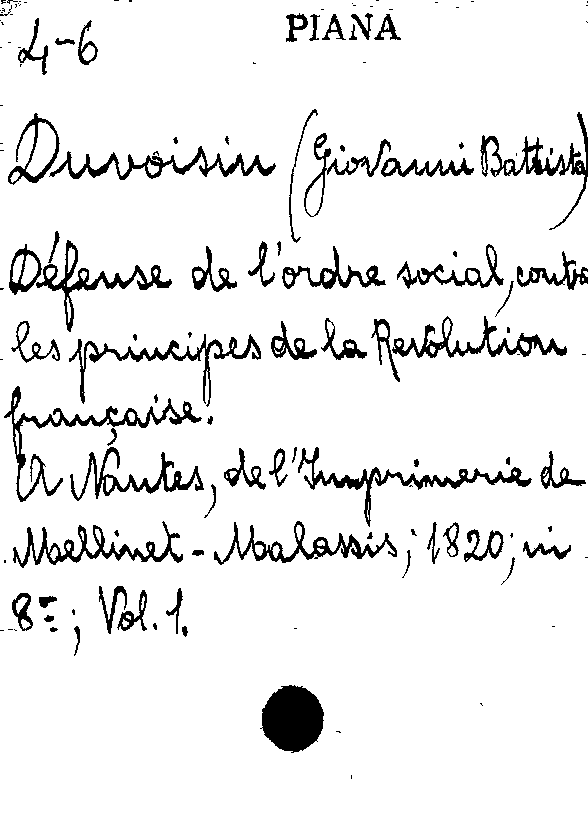 PIANA
4-6
Duvoisin (Giovanni Battista)
Défense de l'ordre social, contre
les principes de la Revolution
française.
A Nantes, de l'Imprimerie de
Mellinet-Malassis; 1820; in
8º; Vol. 1.